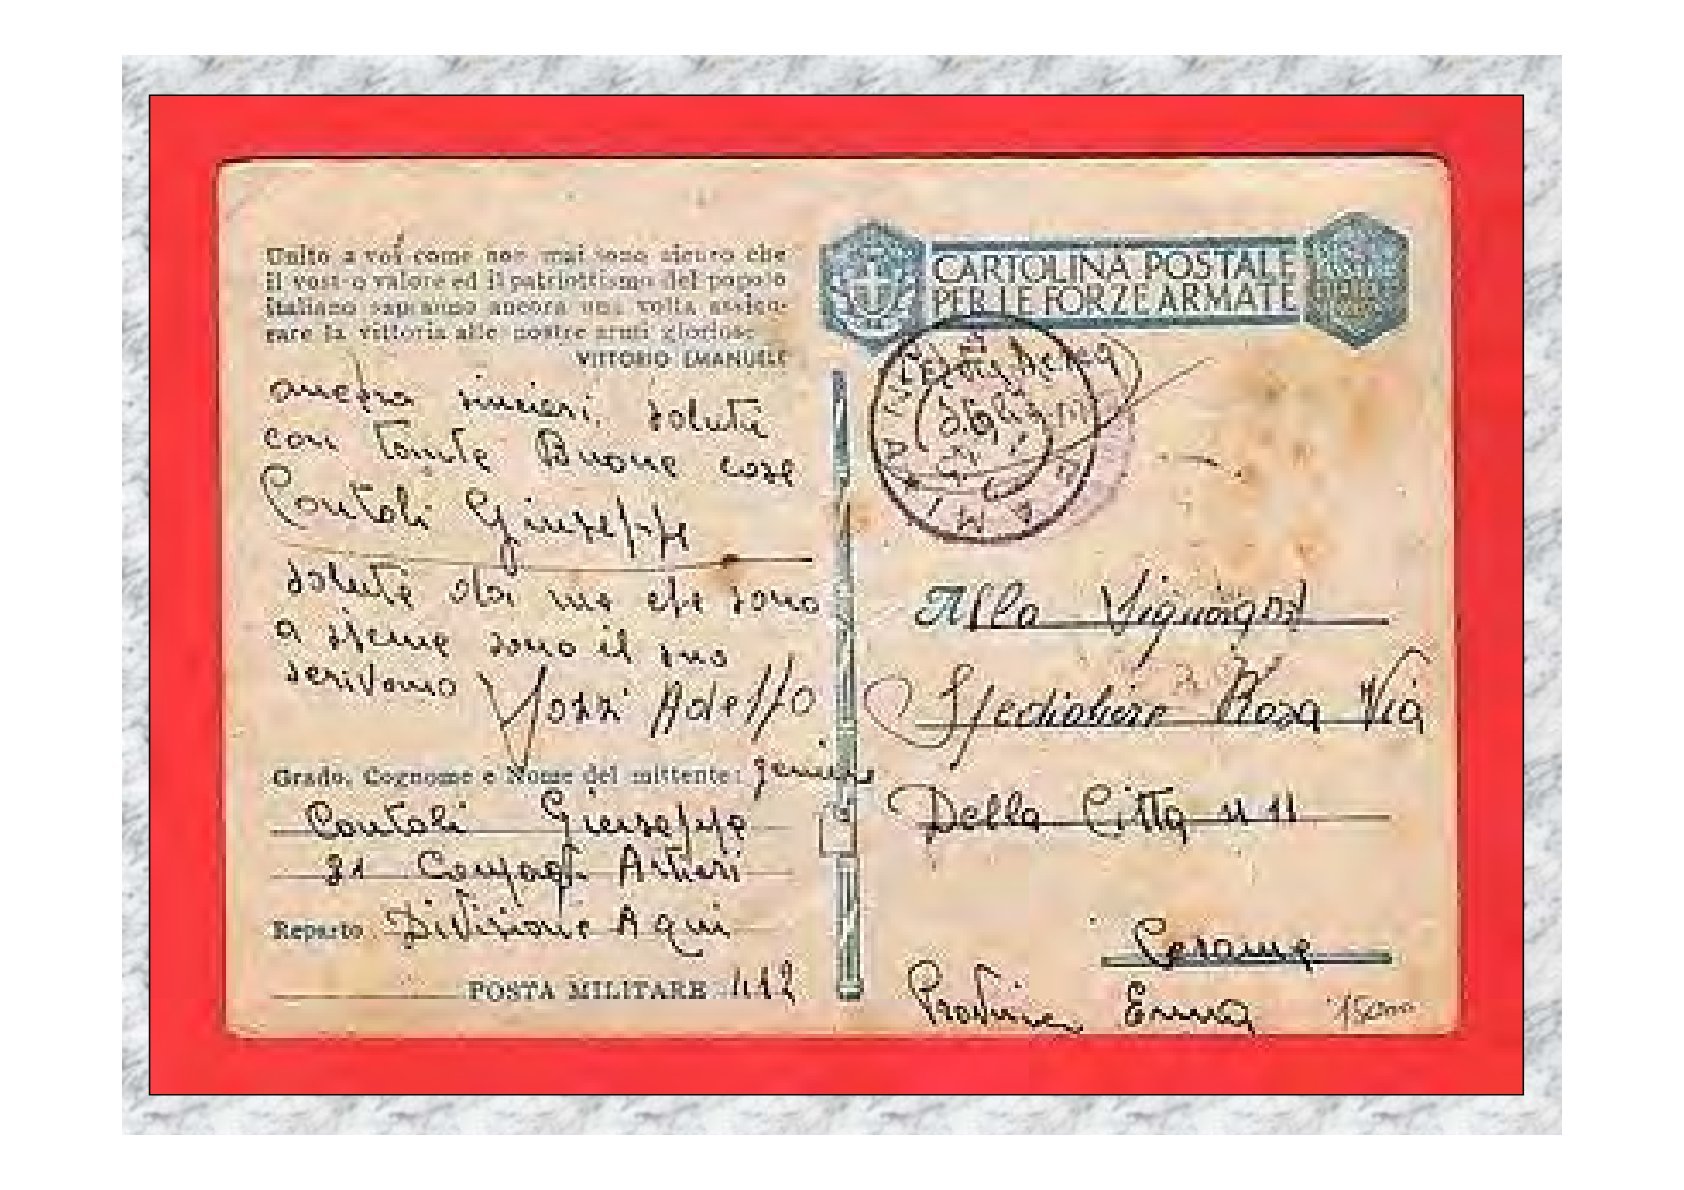 Unito a voi come non mai sono sicuro che
il vostro valore ed il patriottismo del popolo
italiano sapranno ancora una volta assicu-
rare la vittoria alle nostre armi gloriose.
VITTORIO EMANUELE
ancora sinceri saluti
con tante Buone cose
Contoli Giuseppe
saluti da me che sono
a sieme sono il suo
Adelfo
Grado, Cognome e Nome del mittente:
Contoli Giuseppe
31 Compag. Artieri
Reparto Divisione Aqui
POSTA MILITARE 412
CARTOLINA POSTALE
PER LE FORZE ARMATE
Alla
Rosa Via
Della Citta n 11
Cesame
Enna